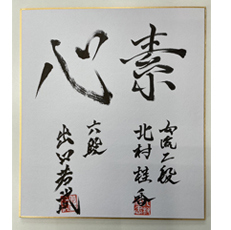 素心
女流二段
北村桂香
六段
出口若武